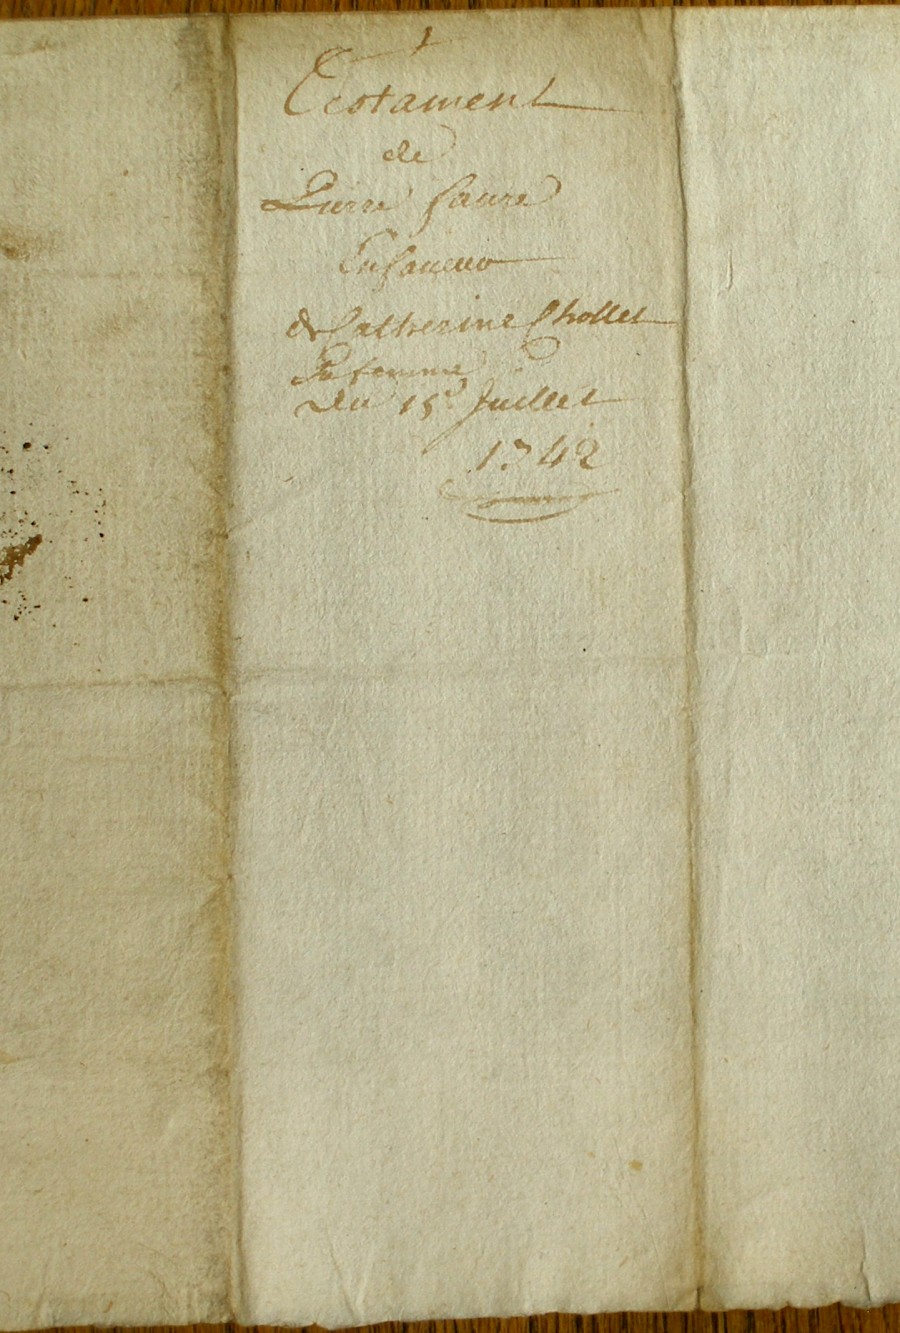 Testament
de
Pierre faure
En faveur
de Catherine Chollet
Sa femme
Du 15e Juillet
1742